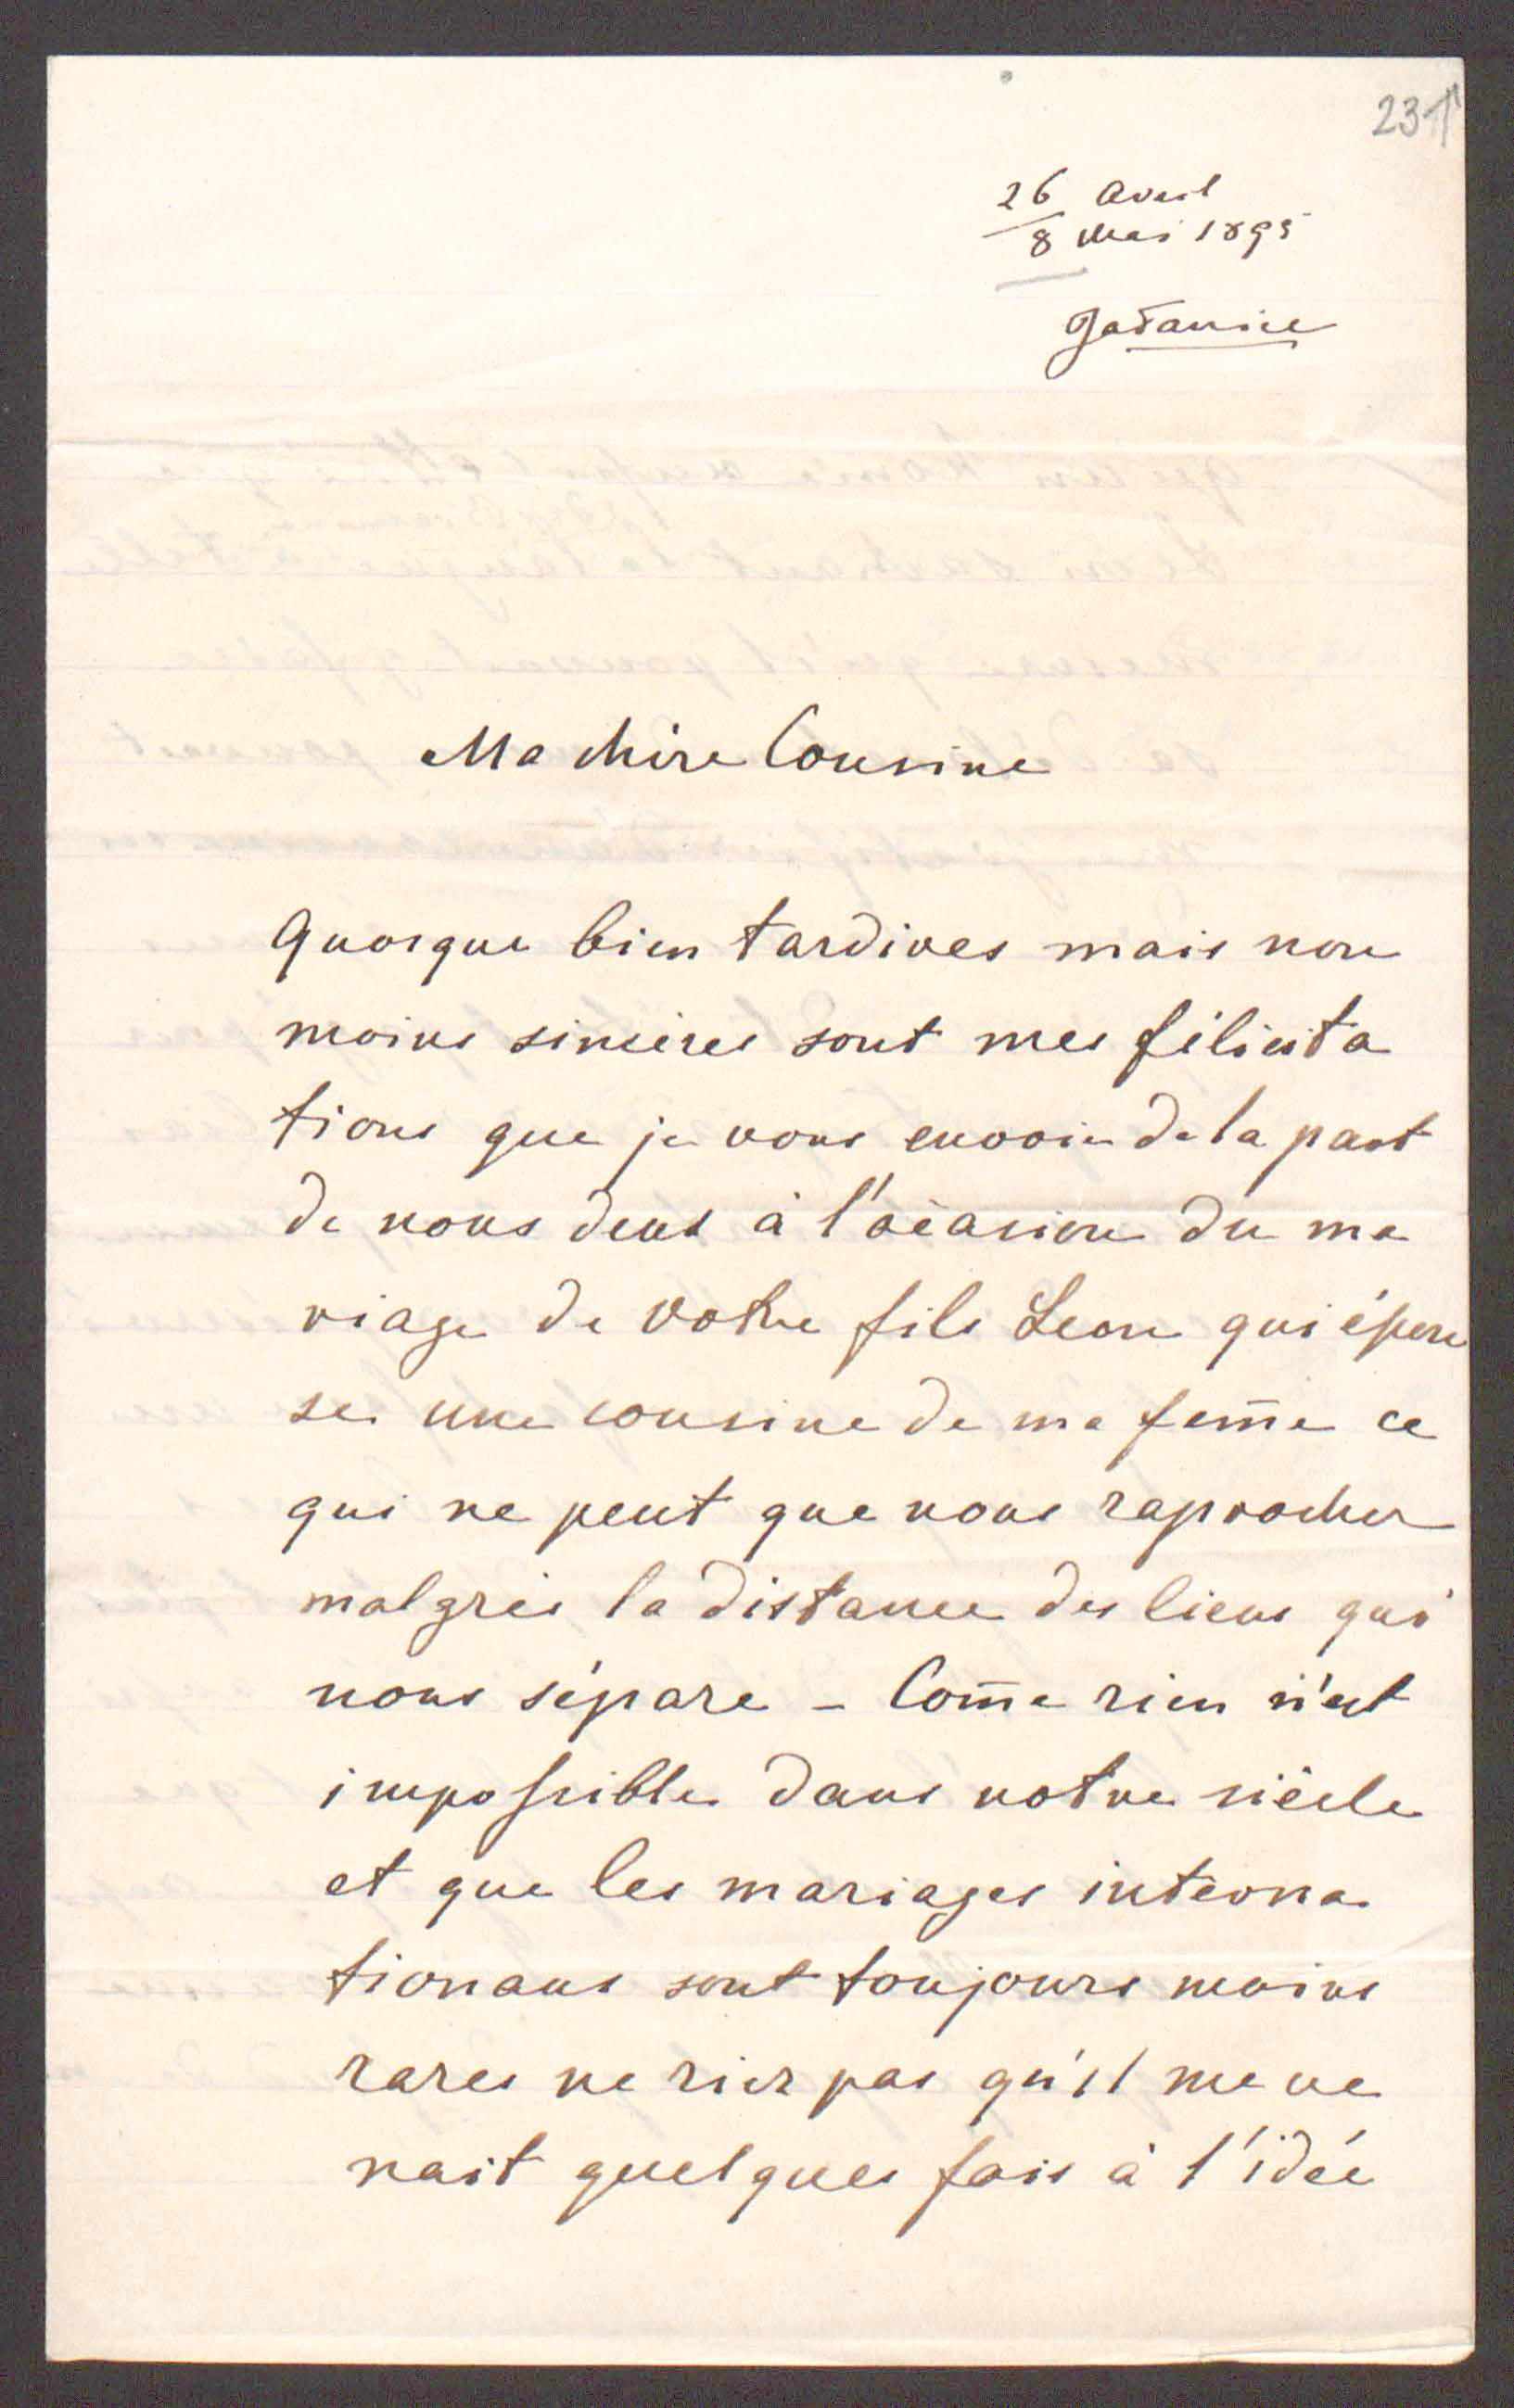 231
26 Avril
8 Mai 1895
Ma chère Cousine
Quoique bien tardives mais non
moins sincères sont mes félicita
tions que je vous envoie de la part
de nous deux à l'ocasion du ma
riage de votre fils Leon qui épou
se une cousine de ma fem̄e ce
qui ne peut que nous raprocher
malgrès la distance des lieux qui
nous sépare – Com̄e rien n'est
impossible dans notre siècle
et que les mariages interna
tionaux sont toujours moins
rares ne riez pas qu'il me ve
nait quelques fois à l'idée